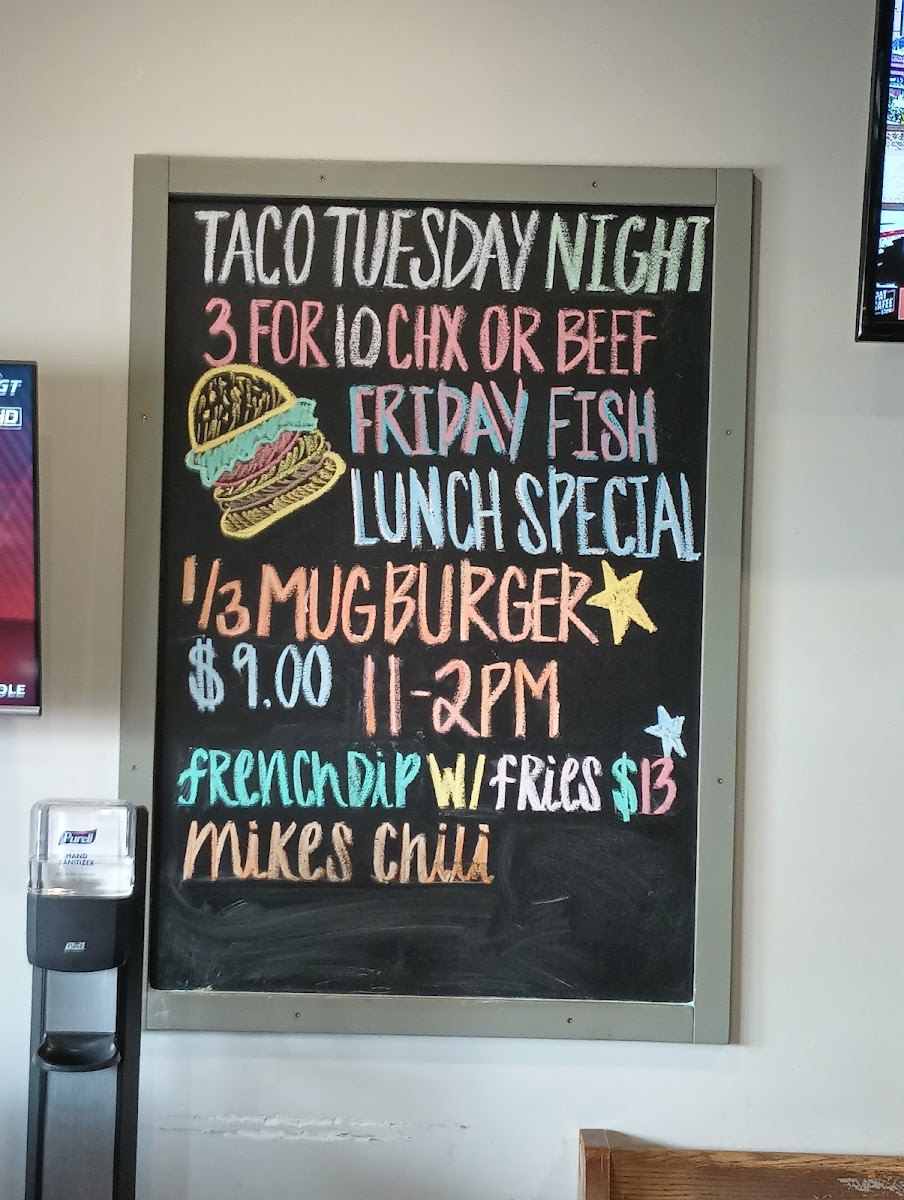 TACO TUESDAY NIGHT
3 FOR 10 CHX OR BEEF
FRIDAY FISH
LUNCH SPECIAL
1/3 MUG BURGER
$9.00 11-2PM
frenchDip W/ fries $13
mikes chili
Purell
HAND
SANITIZER
Purell
GT
HD
OLE
PAT